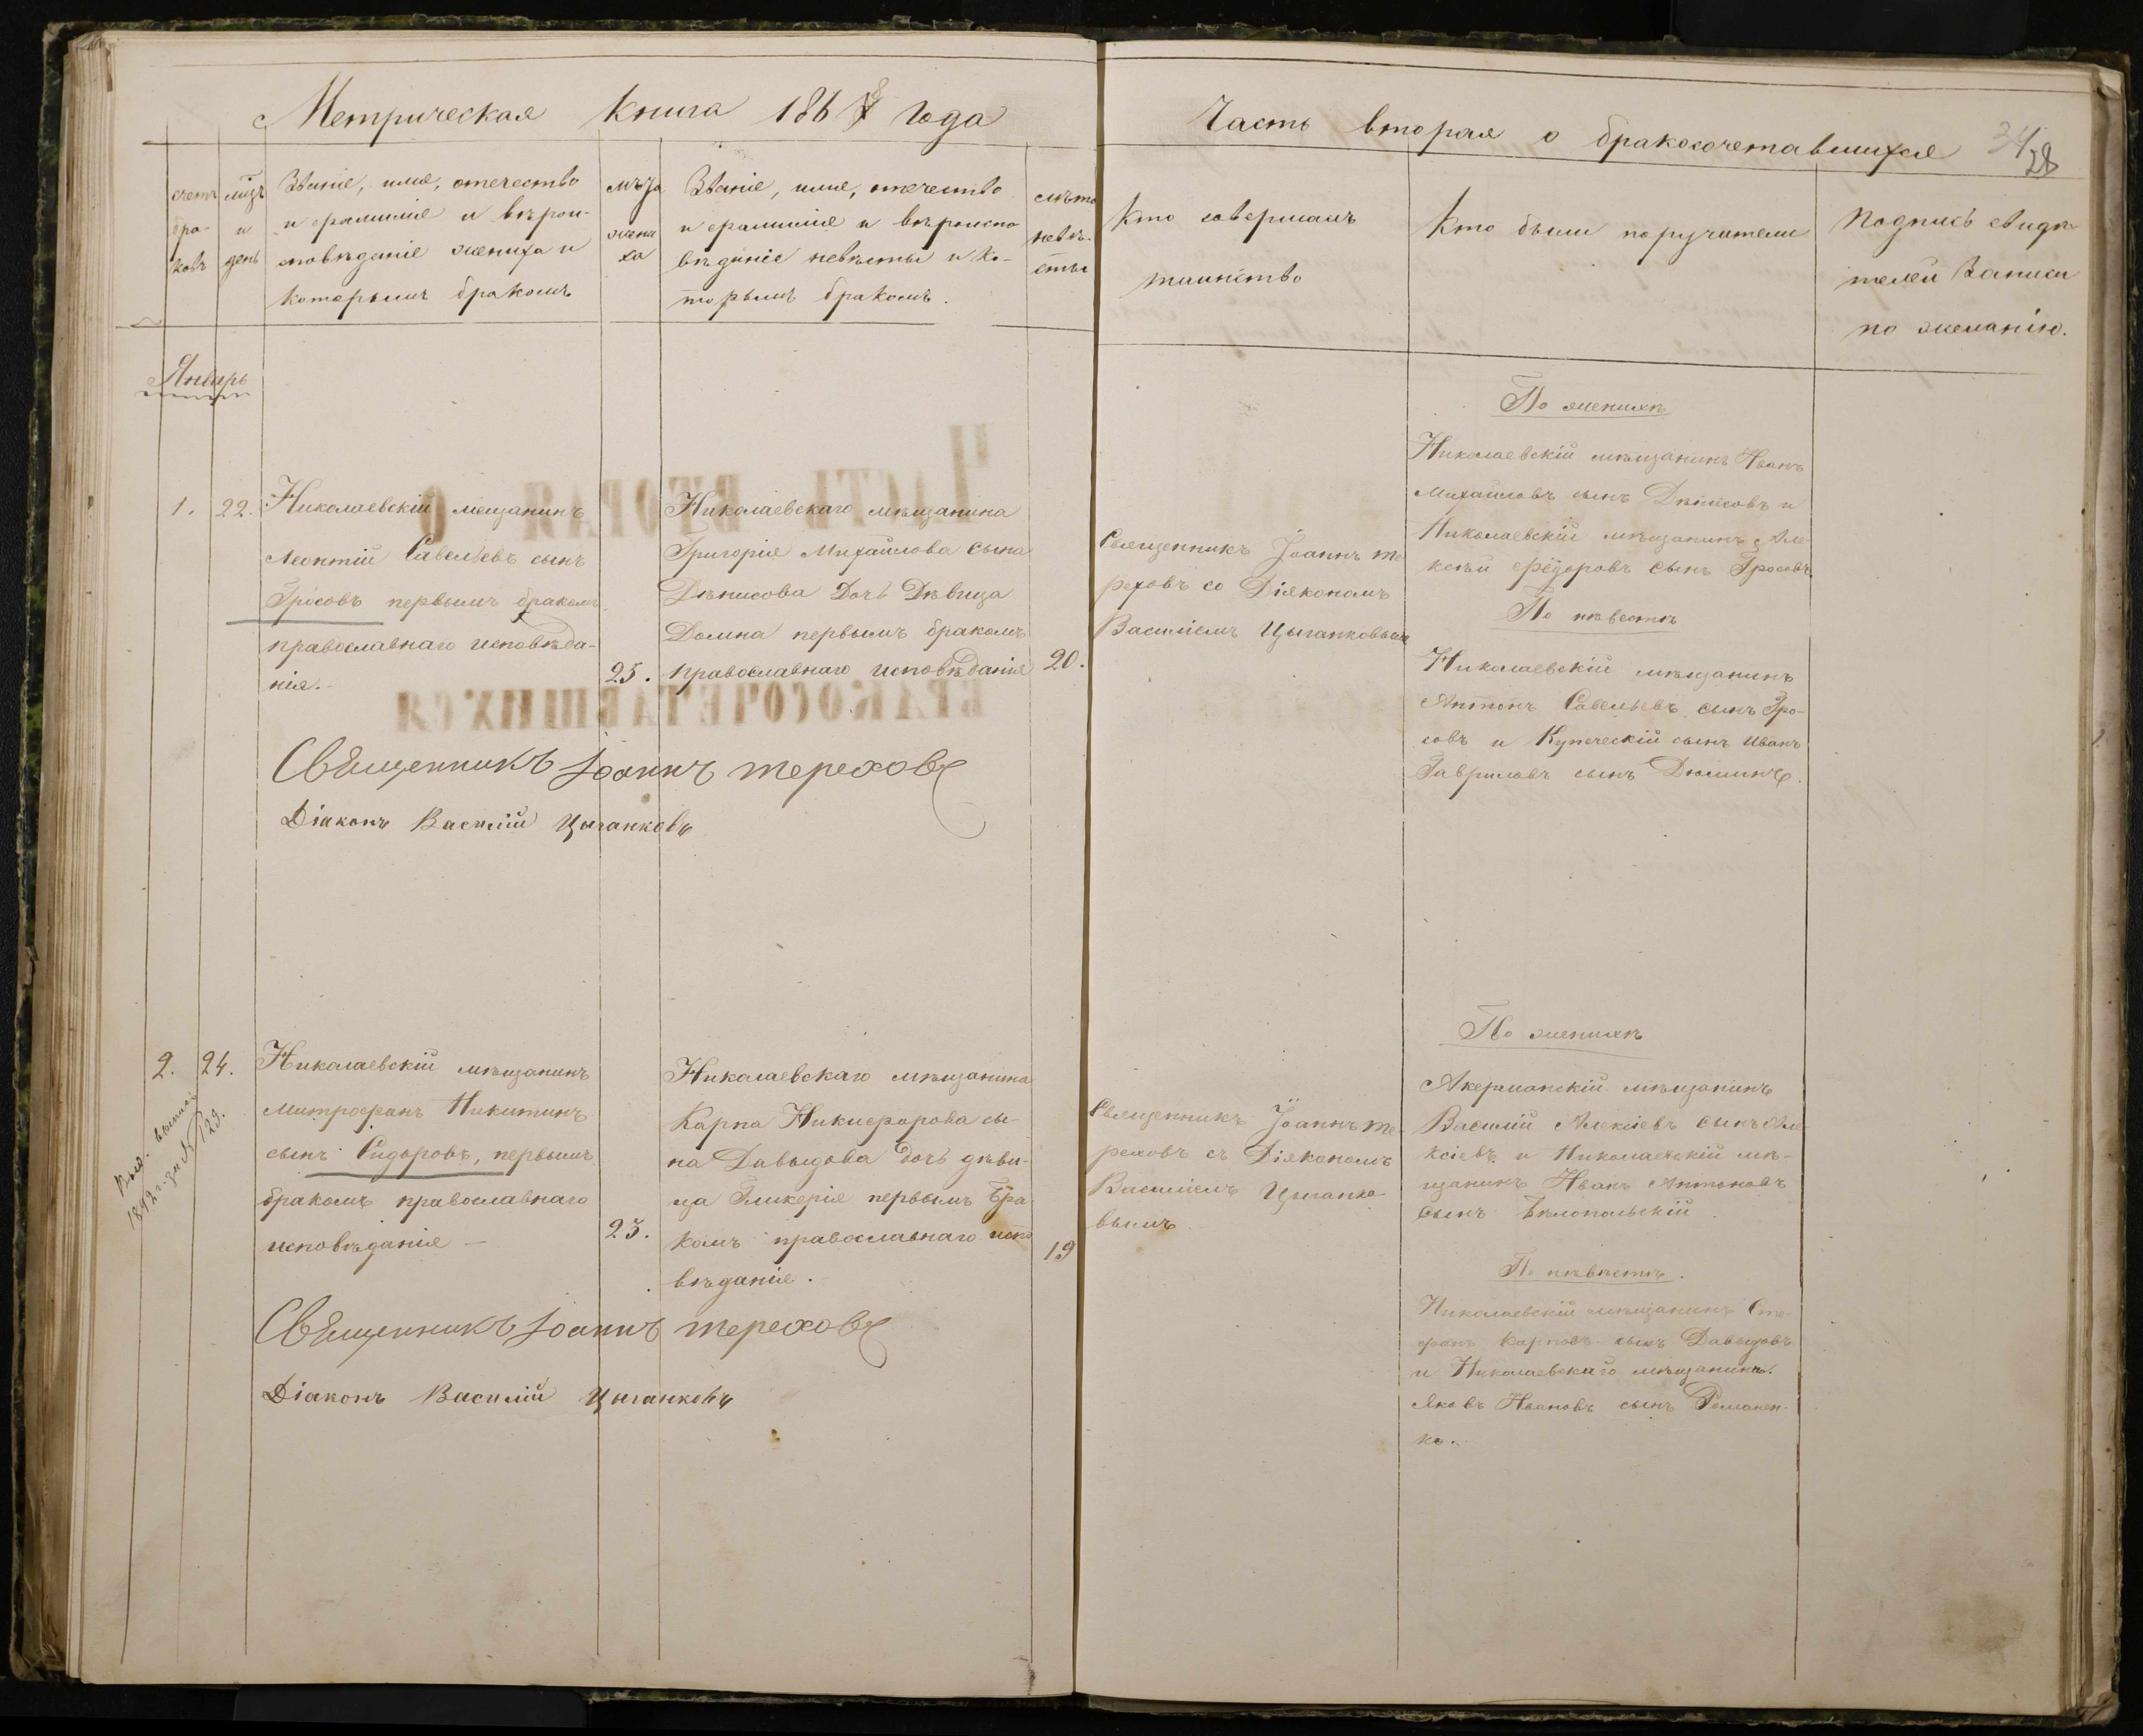 Метрическая Книга 1868 Года
Часть вторая о бракосочетавшихся
28
счетъ
бра-
ковъ
мцъ
и
день
Званіе, имя, отечество
и фамилія и вѣрои-
сповѣданіе жениха и
которымъ бракомъ
жени
ха
Званіе, имя, отечество
и фамилія и вѣроиспо
вѣданіе невѣсты и ко-
торымъ бракомъ.
невѣ-
сты
Кто совершалъ
таинство
Кто были поручители
Подпись свидѣ
телей записи
по желанію.
Январь
ЧАСТЬ ВТОРАЯ О
БРАКОСОЧЕТАВШИХСЯ
1. 22.
Николаевскій мещанинъ
Леонтій Савельевъ сынъ
Гросовъ первымъ бракомъ
православнаго исповѣда-
нія.-
25.
Николаевскаго мѣщанина
Григорія Михайлова сына
Дѣнисова Дочь Дѣвица
Домна первымъ бракомъ
православнаго исповѣданія
20.
Священникъ Іоаннъ Те
реховъ со Діякономъ
Василіемъ Цыганковымъ
По женихѣ
Николаевскій мѣщанинъ Иванъ
Михайловъ сынъ Дѣнисовъ и
Николаевскій мѣщанинъ Але-
ксѣй Фёдоровъ сынъ Гросовъ.
По нѣвестѣ
Николаевскій мѣщанинъ
Антонъ Савельевъ сынъ Гро-
совъ и Купеческій сынъ Иванъ
Гавриловъ сынъ Дюминъ.
Священникъ Іоаннъ Тереховъ
Діаконъ Василій Цыганковъ
2. 24.
Выд. выпись
1892 г. за № 123.
Николаевскій мѣщанинъ
Митрофанъ Никитинъ
сынъ Сидоровъ, первымъ
бракомъ православнаго
исповѣданія —
23.
Николаевскаго мѣщанина
Карпа Никифорова сы-
на Давыдова дочь дѣви-
ца Гликерія первымъ бра-
комъ православнаго испо
вѣданія.
19
Священникъ Іоаннъ Те-
реховъ съ Діякономъ
Василіемъ Цыганко-
вымъ
По женихѣ
Акерманскій мѣщанинъ
Василій Алексіевъ сынъ Але-
ксіевъ и Николаевскій мѣ-
щанинъ Иванъ Антоновъ
сынъ Бѣлопольскій
По нѣвѣстѣ.
Николаевскій мѣщанинъ Сте-
фанъ Карповъ сынъ Давыдовъ
и Николаевскаго мѣщанина
Яковъ Ивановъ сынъ Романен-
ко.
Священникъ Іоаннъ Тереховъ
Діаконъ Василій Цыганковъ